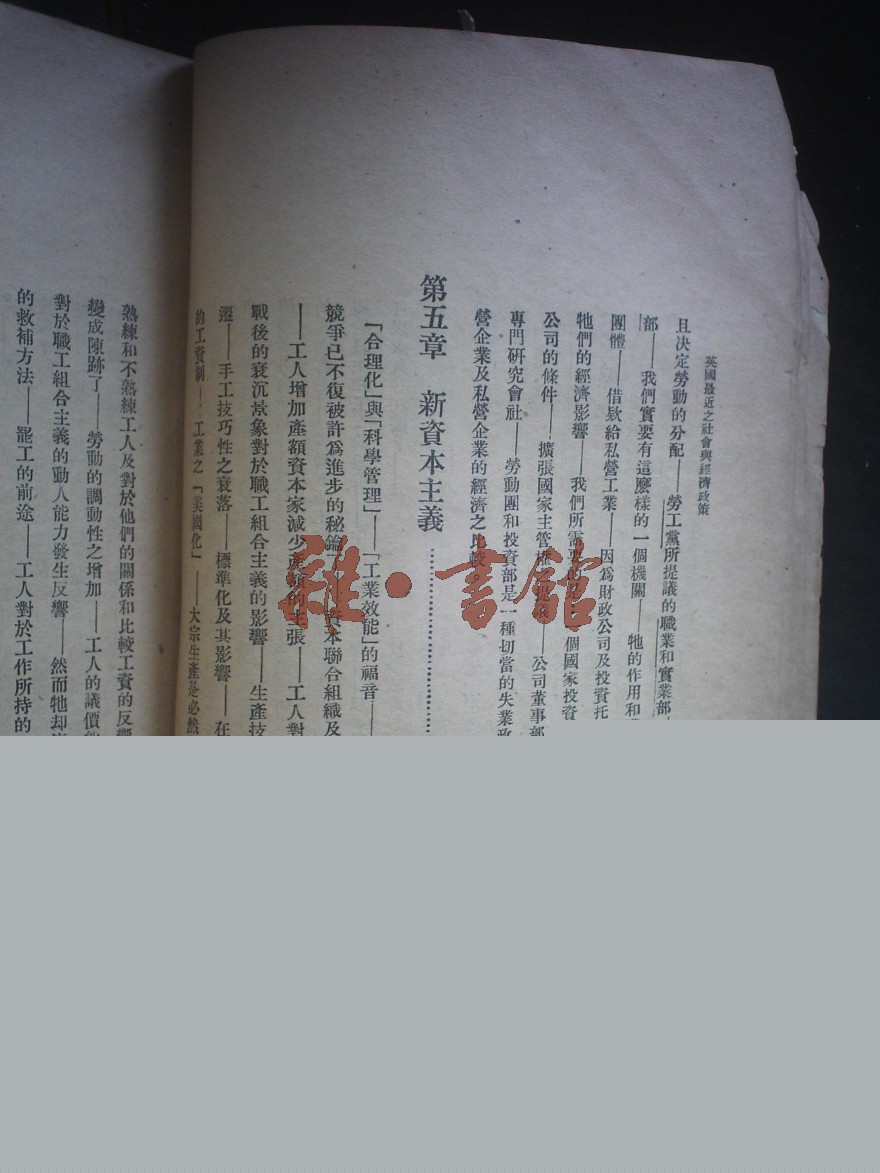 英國最近之社會與經濟政策
且決定勞動的分配——勞工黨所提議的職業和實業部
部——我們實要有這麽樣的一個機關——牠的作用和
團體——借欵給私營工業——因爲財政公司及投資托
牠們的經濟影響——我們所需要的是一個國家投資
公司的條件——擴張國家主管權——公司董事部
專門研究會社——勞動團和投資部是一種切當的失業政
營企業及私營企業的經濟之比較
第五章 新資本主義…………………
「合理化」與「科學管理」——「工業效能」的福音——
競爭已不復被許爲進步的秘鑰了——資本聯合組織及
——工人增加產額資本家減少產額的主張——工人對
戰後的衰沉景象對於職工組合主義的影響——生產技
遷——手工技巧性之衰落——標準化及其影響——在
的工資制——工業之「美國化」——大宗生產是必然
熟練和不熟練工人及對於他們的關係和比較工資的反響
變成陳跡了——勞動的調動性之增加——工人的議價
對於職工組合主義的動人能力發生反響——然而牠却
的救補方法——罷工的前途——工人對於工作所持的
雜·書館